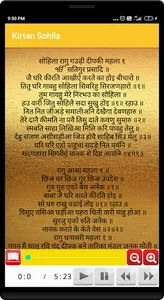 9:50 PM
Kirtan Sohila
सोहिला रागु गउड़ी दीपकी महला १
ੴ सतिगुर प्रसादि ॥
जै घरि कीरति आखीऐ करते का होइ बीचारो ॥
तितु घरि गावहु सोहिला सिवरिहु सिरजणहारो ॥१॥
तुम गावहु मेरे निरभउ का सोहिला ॥
हउ वारी जितु सोहिलै सदा सुखु होइ ॥१॥ रहाउ ॥
नित नित जीअड़े समालीअनि देखैगा देवणहारु ॥
तेरे दानै कीमति ना पवै तिसु दाते कवणु सुमारु ॥२॥
स्मबति साहा लिखिआ मिलि करि पावहु तेलु ॥
देहु सजण असीसड़ीआ जिउ होवै साहिब सिउ मेलु ॥३॥
घरि घरि एहो पाहुचा सदड़े नित पवंनि ॥
सदणहारा सिमरीऐ नानक से दिह आवंनि ॥४॥१॥
रागु आसा महला १ ॥
छिअ घर छिअ गुर छिअ उपदेस ॥
गुरु गुरु एको वेस अनेक ॥१॥
बाबा जै घरि करते कीरति होइ ॥
सो घरु राखु वडाई तोइ ॥१॥ रहाउ ॥
विसुए चसिआ घड़ीआ पहरा थिती वारी माहु होआ ॥
सूरजु एको रुति अनेक ॥
नानक करते के केते वेस ॥२॥२॥
रागु धनासरी महला १ ॥
0:0 / 5:23